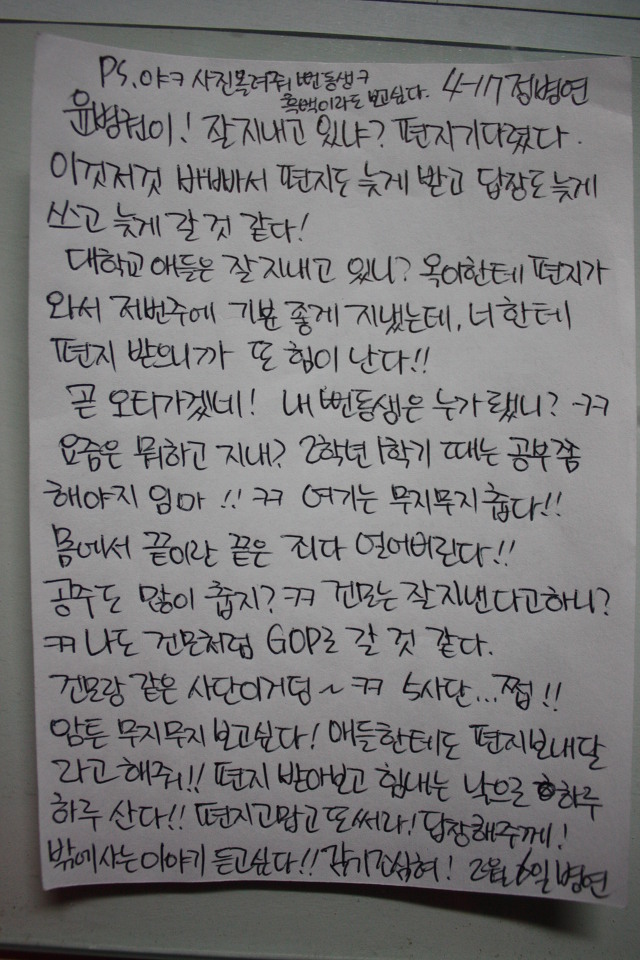 PS. 야ㅋ 사진몰려줘 뻔동생ㅋ
흑백이라도 보고싶다. 4-17 정병연
윤병권이! 잘지내고 있냐? 편지기다렸다.
이것저것 바빠서 편지도 늦게 받고 답장도 늦게
쓰고 늦게 갈 것 같다!
대학교 애들은 잘지내고 있니? 옥이한테 편지가
와서 저번주에 기분 좋게 지냈는데, 너한테
편지 받으니까 또 힘이 난다!!
곧 오티가겠네! 내 뻔동생은 누가 됐니? ㅋㅋ
요즘은 뭐하고 지내? 2학년 1학기 때는 공부쫌
해야지 임마!! ㅋㅋ 여기는 무지무지 춥다!!
몸에서 끝이란 끝은 죄다 얼어버린다!!
공주도 많이 춥지? ㅋㅋ 건모는 잘지낸다고하니?
ㅋㅋ 나도 건모처럼 GOP로 갈 것 같다.
건모랑 같은 사단이거덩~ ㅋㅋ 5사단...쩝!!
암튼 무지무지 보고싶다! 애들한테도 편지보내달
라고 해줘!! 편지 받아보고 힘내는 낙으로 하루
하루 산다!! 편지고맙고 또써라! 답장해주께!
밖에 사는 이야기 듣고싶다!! 감기조심혀! 2월 6일 병연